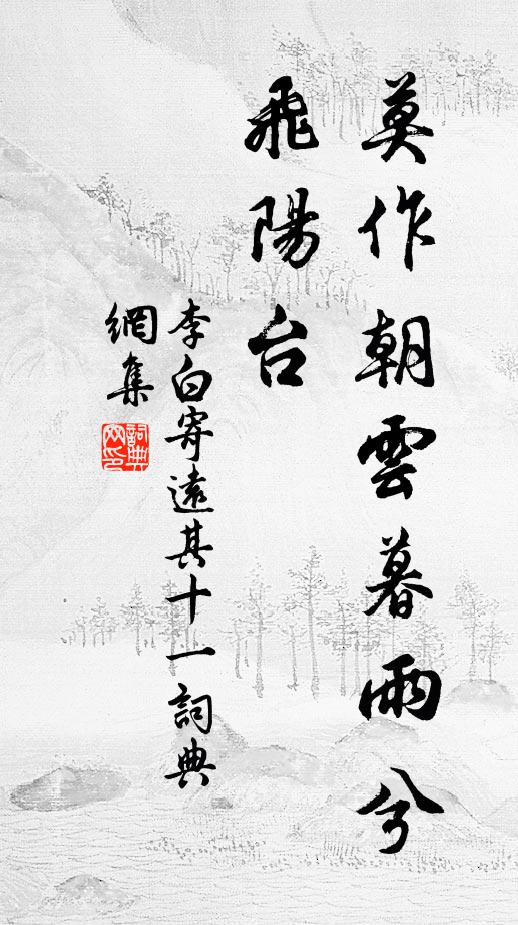 莫作朝雲暮雨兮
飛陽台
李白寄遠其十一詞典
網集
詞典
网印